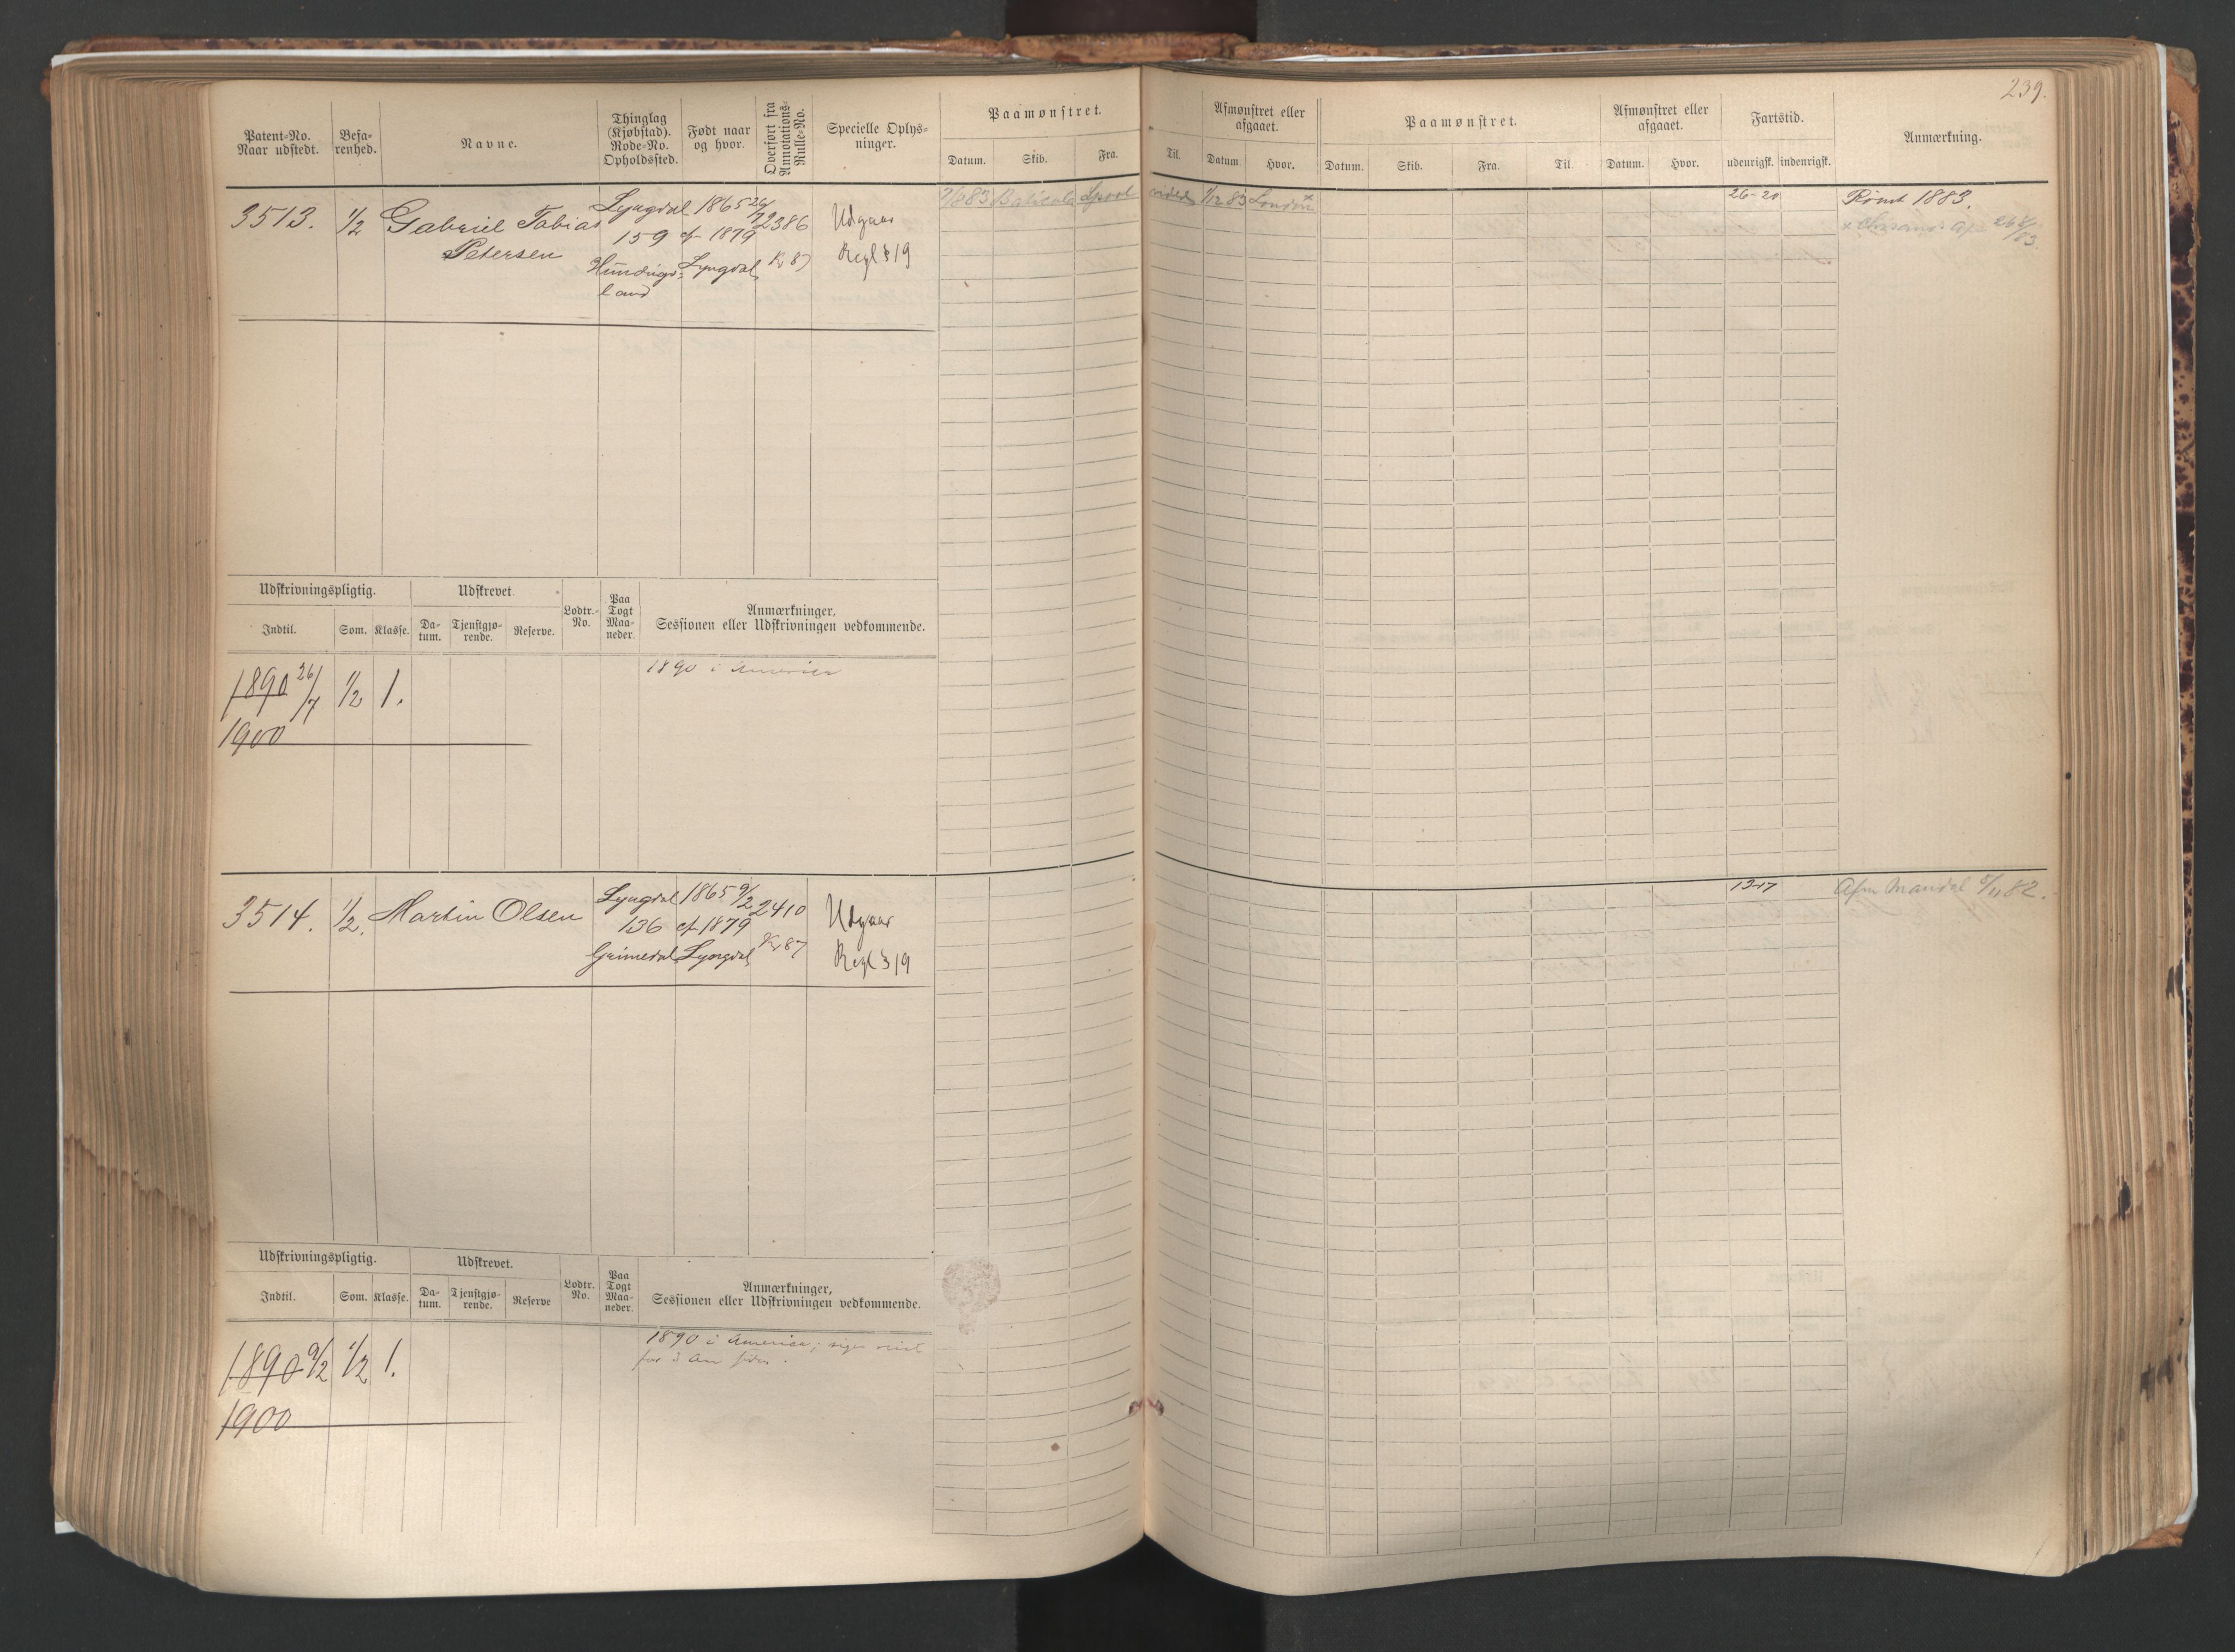 239.
Patent-No. Naar udstedt.
Besa-renhed.
Navne.
Thinglag (Kjøbstad). Rode-No. Opholdssted.
Født naar og hvor.
Overført fra Annotations-Rulle-No.
Specielle Oplys-ninger.
Paamønstret.
Datum. Skib. Fra. Til.
Afmønstret eller afgaaet.
Datum. Hvor.
Paamønstret.
Datum. Skib. Fra. Til.
Afmønstret eller afgaaet.
Datum. Hvor.
Fartstid.
udenrigsk. indenrigsk.
Anmærkning.
3513. 1/2 Gabriel Tobias Lyngdal 1865 26/7 2386 Udgaar
Petersen 159 cf. 1879
Hundings-land Lyngdal Kr 87 Regl § 19
83 London
26-20 Rømt 1883.
Udskrivningspligtig. Udskrevet. Lodtr.-No. Paa Togt Maa-neder. Anmærkninger, Sessionen eller Udskrivningen vedkommende.
Indtil. Som. Klasse. Da-tum. Tjenstgjø-rende. Reserve.
1890 26/7 1/2 1. 1890 i America
1900
3514. 1/2. Martin Olsen Lyngdal 1865 9/2 2410 Udgaar
136 cf 1879
Grimedal Lyngdal Kr 87 Regl § 19
13-17 Afm Mandal 5/11 82.
Udskrivningspligtig. Udskrevet. Lodtr. No. Paa Togt Maa-neder. Anmærkninger, Sessionen eller Udskrivningen vedkommende.
Indtil. Som. Klasse. Da-tum. Tjenstgjø-rende. Reserve
1890 9/2 1/2 1. 1890 i America; siges
for 3 Aar siden.
1900